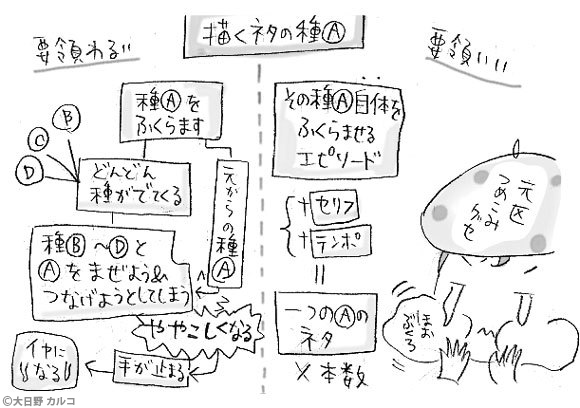 描くネタの種Ⓐ
要領わる!!
種Ⓐを
ふくらます
Ⓑ
Ⓒ
Ⓓ
どんどん
種がでてくる
元からの種Ⓐ
種Ⓑ〜Ⓓと
Ⓐをまぜよう&
つなげようとしてしまう
ややこしくなる
手が止まる
イヤに
なる
要領いい
その種Ⓐ自体を
ふくらませる
エピソード
+セリフ
+テンポ
=
一つのⒶの
ネタ
×本数
つめこみグセ
ほお
ぶくろ
©大日野 カルコ